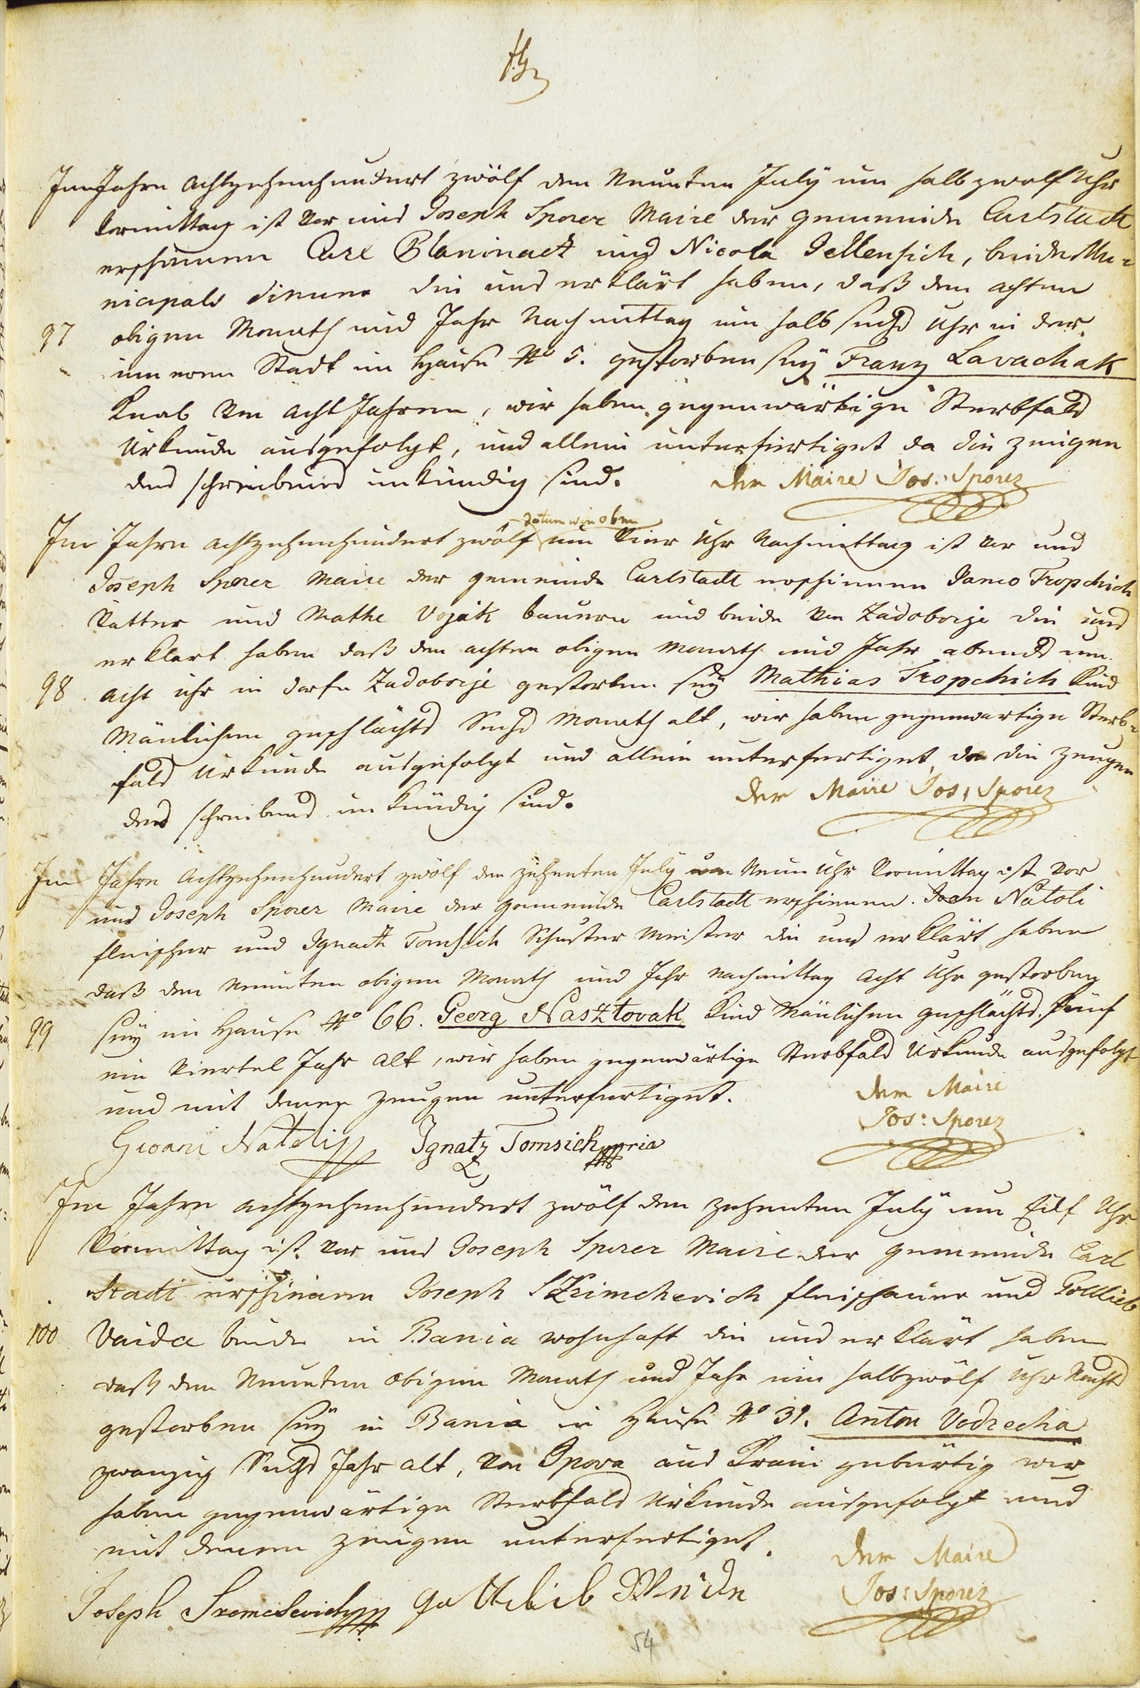 Im Jahre achtzehenhundert zwölf den Neunten July um halb zwolf Uhr
vormittag ist vor uns Joseph Sporer Maire der gemeinde Carlstadt
erschienen Carl Blaninaetz und Nicola Jellensich, beide Mu=
nicipals diener die uns erklärt haben, daß den achten
97 obigen Monath und Jahr Nachmittag um halb sechs Uhr in der
inneren Stadt im Hause No 5. gestorben seÿ Franz Lavachak
Knab von acht Jahren, wir haben gegenwärtige Sterbfalls
Urkunde ausgefolgt, und allein unterfertiget da die zeugen
des schreibens unkündig sind. Der Maire Jos: Sporer
datum wie oben
Im Jahre achtzehenhundert zwölf um Vier Uhr Nachmittag ist vor uns
Joseph Sporer Maire der gemeinde Carlstadt erschienen Janco Tropchich
Vatter und Mathe Vojak bauern und beide von Zadoborje die uns
erklärt haben daß den achten obigen Monath und Jahr abends um
98 acht uhr in dorfe Zadoborje gestorben seÿ Mathias Tropchich Kind
Mänlichen geschlächts Sechs Monath alt, wir haben gegenwärtige Sterb=
falls Urkunde ausgefolgt und allein unterfertiget, da die zeugen
des schreibens unkündig sind. Der Maire Jos: Sporer
Im Jahre Achtzehenhundert zwölf den zehenten July um Neun Uhr Vormittag ist vor
uns Joseph Sporer Maire der gemeinde Carlstadt erschienen. Joan Natoli
fleischer und Ignatz Tomsich Schuster Meister die uns erklärt haben
daß den Neunten obigen Monath und Jahr nachmittag acht Uhr gestorben
99 seÿ im Hause No 66. Georg Nasztovak Kind Mänlichen geschlächts fünf
ein Viertel Jahr alt, wir haben gegenwärtige Sterbfalls Urkunde ausgefolgt
und mit denen zeugen unterfertiget. Der Maire
Jos: Sporer
Gioani Natoli Ignatz Tomsich mpria
Im Jahre achtzehenhundert zwölf den zehenten July um Eilf Uhr
Vormittag ist vor uns Joseph Sporer Maire der gemeinde Carl
Stadt erschienen Joseph Szrimchevich fleischauer und Gottlieb
100 Vaida beide in Bania wohnhaft die uns erklärt haben
daß den Neunten obigen Monath und Jahr um halbzwölf Uhr Nachts
gestorben seÿ in Bania in Hause No 31. Anton Vodrecha
zwanzig Sechs Jahr alt, von Opova aus Krain gebürtig wir
haben gegenwärtige Sterbfalls Urkunde ausgefolgt und
mit denen zeugen unterfertiget. Der Maire
Jos: Sporer
Joseph Sremcsevich Gottlieb Weide
54